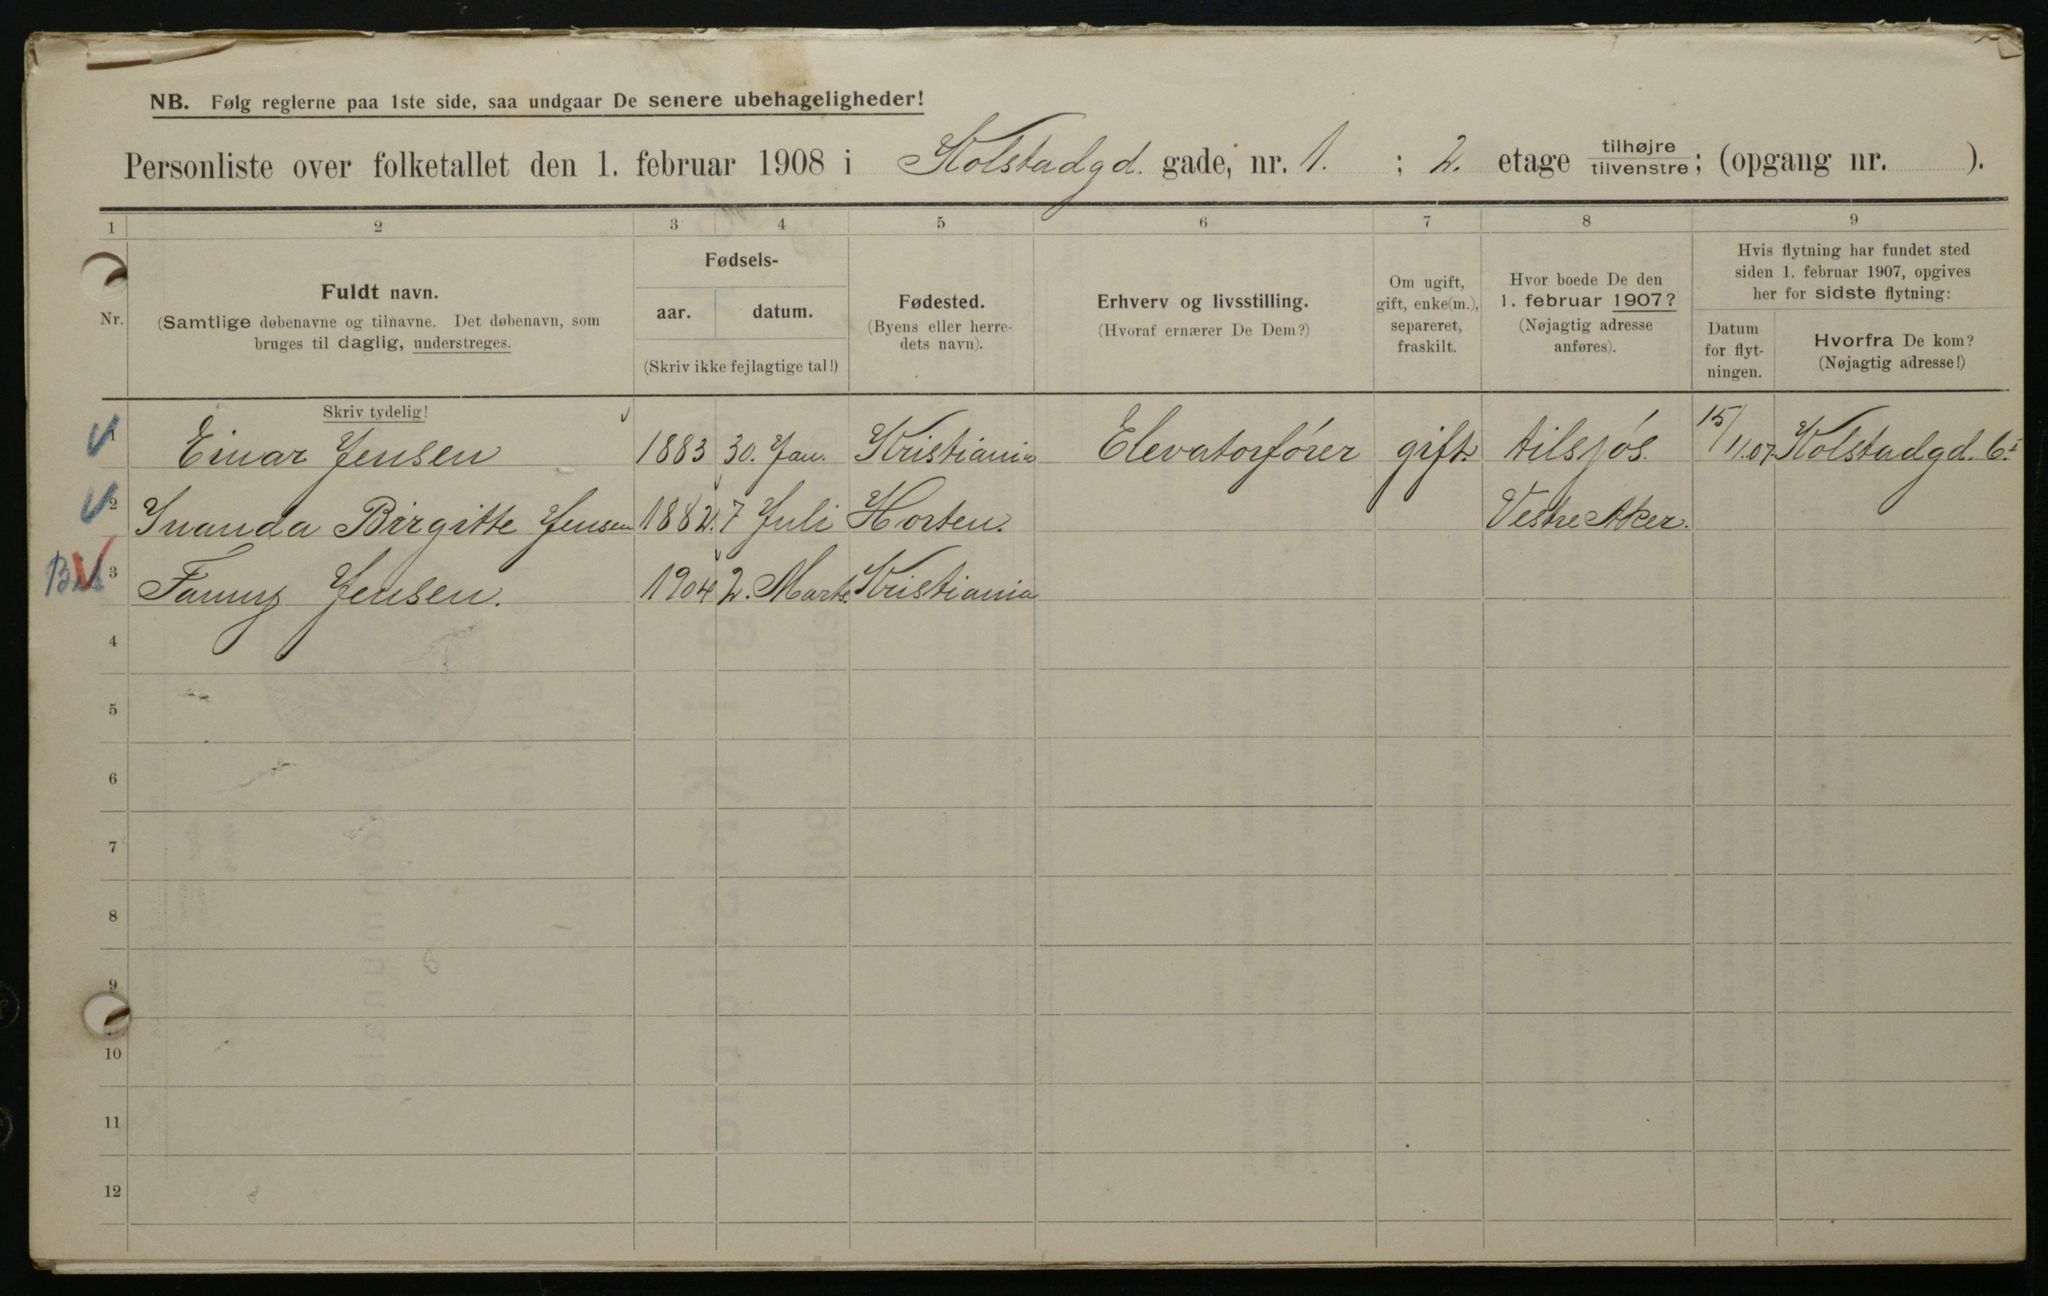 NB. Følg reglerne paa 1ste side, saa undgaar De senere ubehageligheder!
Personliste over folketallet den 1. februar 1908 i Kolstadgd. gade, nr. 1. ; 2. etage tilhøjre/tilvenstre; (opgang nr. ).
1 2 3 4 5 6 7 8 9
Nr.
Fuldt navn.
(Samtlige døbenavne og tilnavne. Det døbenavn, som
bruges til daglig, understreges.
Skriv tydelig!
Fødsels-
aar. datum.
(Skriv ikke fejlagtige tal!)
Fødested.
(Byens eller herre-
dets navn).
Erhverv og livsstilling.
(Hvoraf ernærer De Dem?)
Om ugift,
gift, enke(m.),
separeret,
fraskilt.
Hvor boede De den
1. februar 1907?
(Nøjagtig adresse
anføres).
Hvis flytning har fundet sted
siden 1. februar 1907, opgives
her for sidste flytning:
Datum
for flyt-
ningen.
Hvorfra De kom?
(Nøjagtig adresse!)
1 Einar Jensen 1883 30. Jan. Kristiania Elevatorfører gift. 15/11.07 Kolstadgd. 6 I
2 Birgitte Jensen 1882. 7 Juli Horten. Vestre Aker.
3 Fanny Jensen. 1904 2. Marts. Kristiania
4
5
6
7
8
9
10
11
12